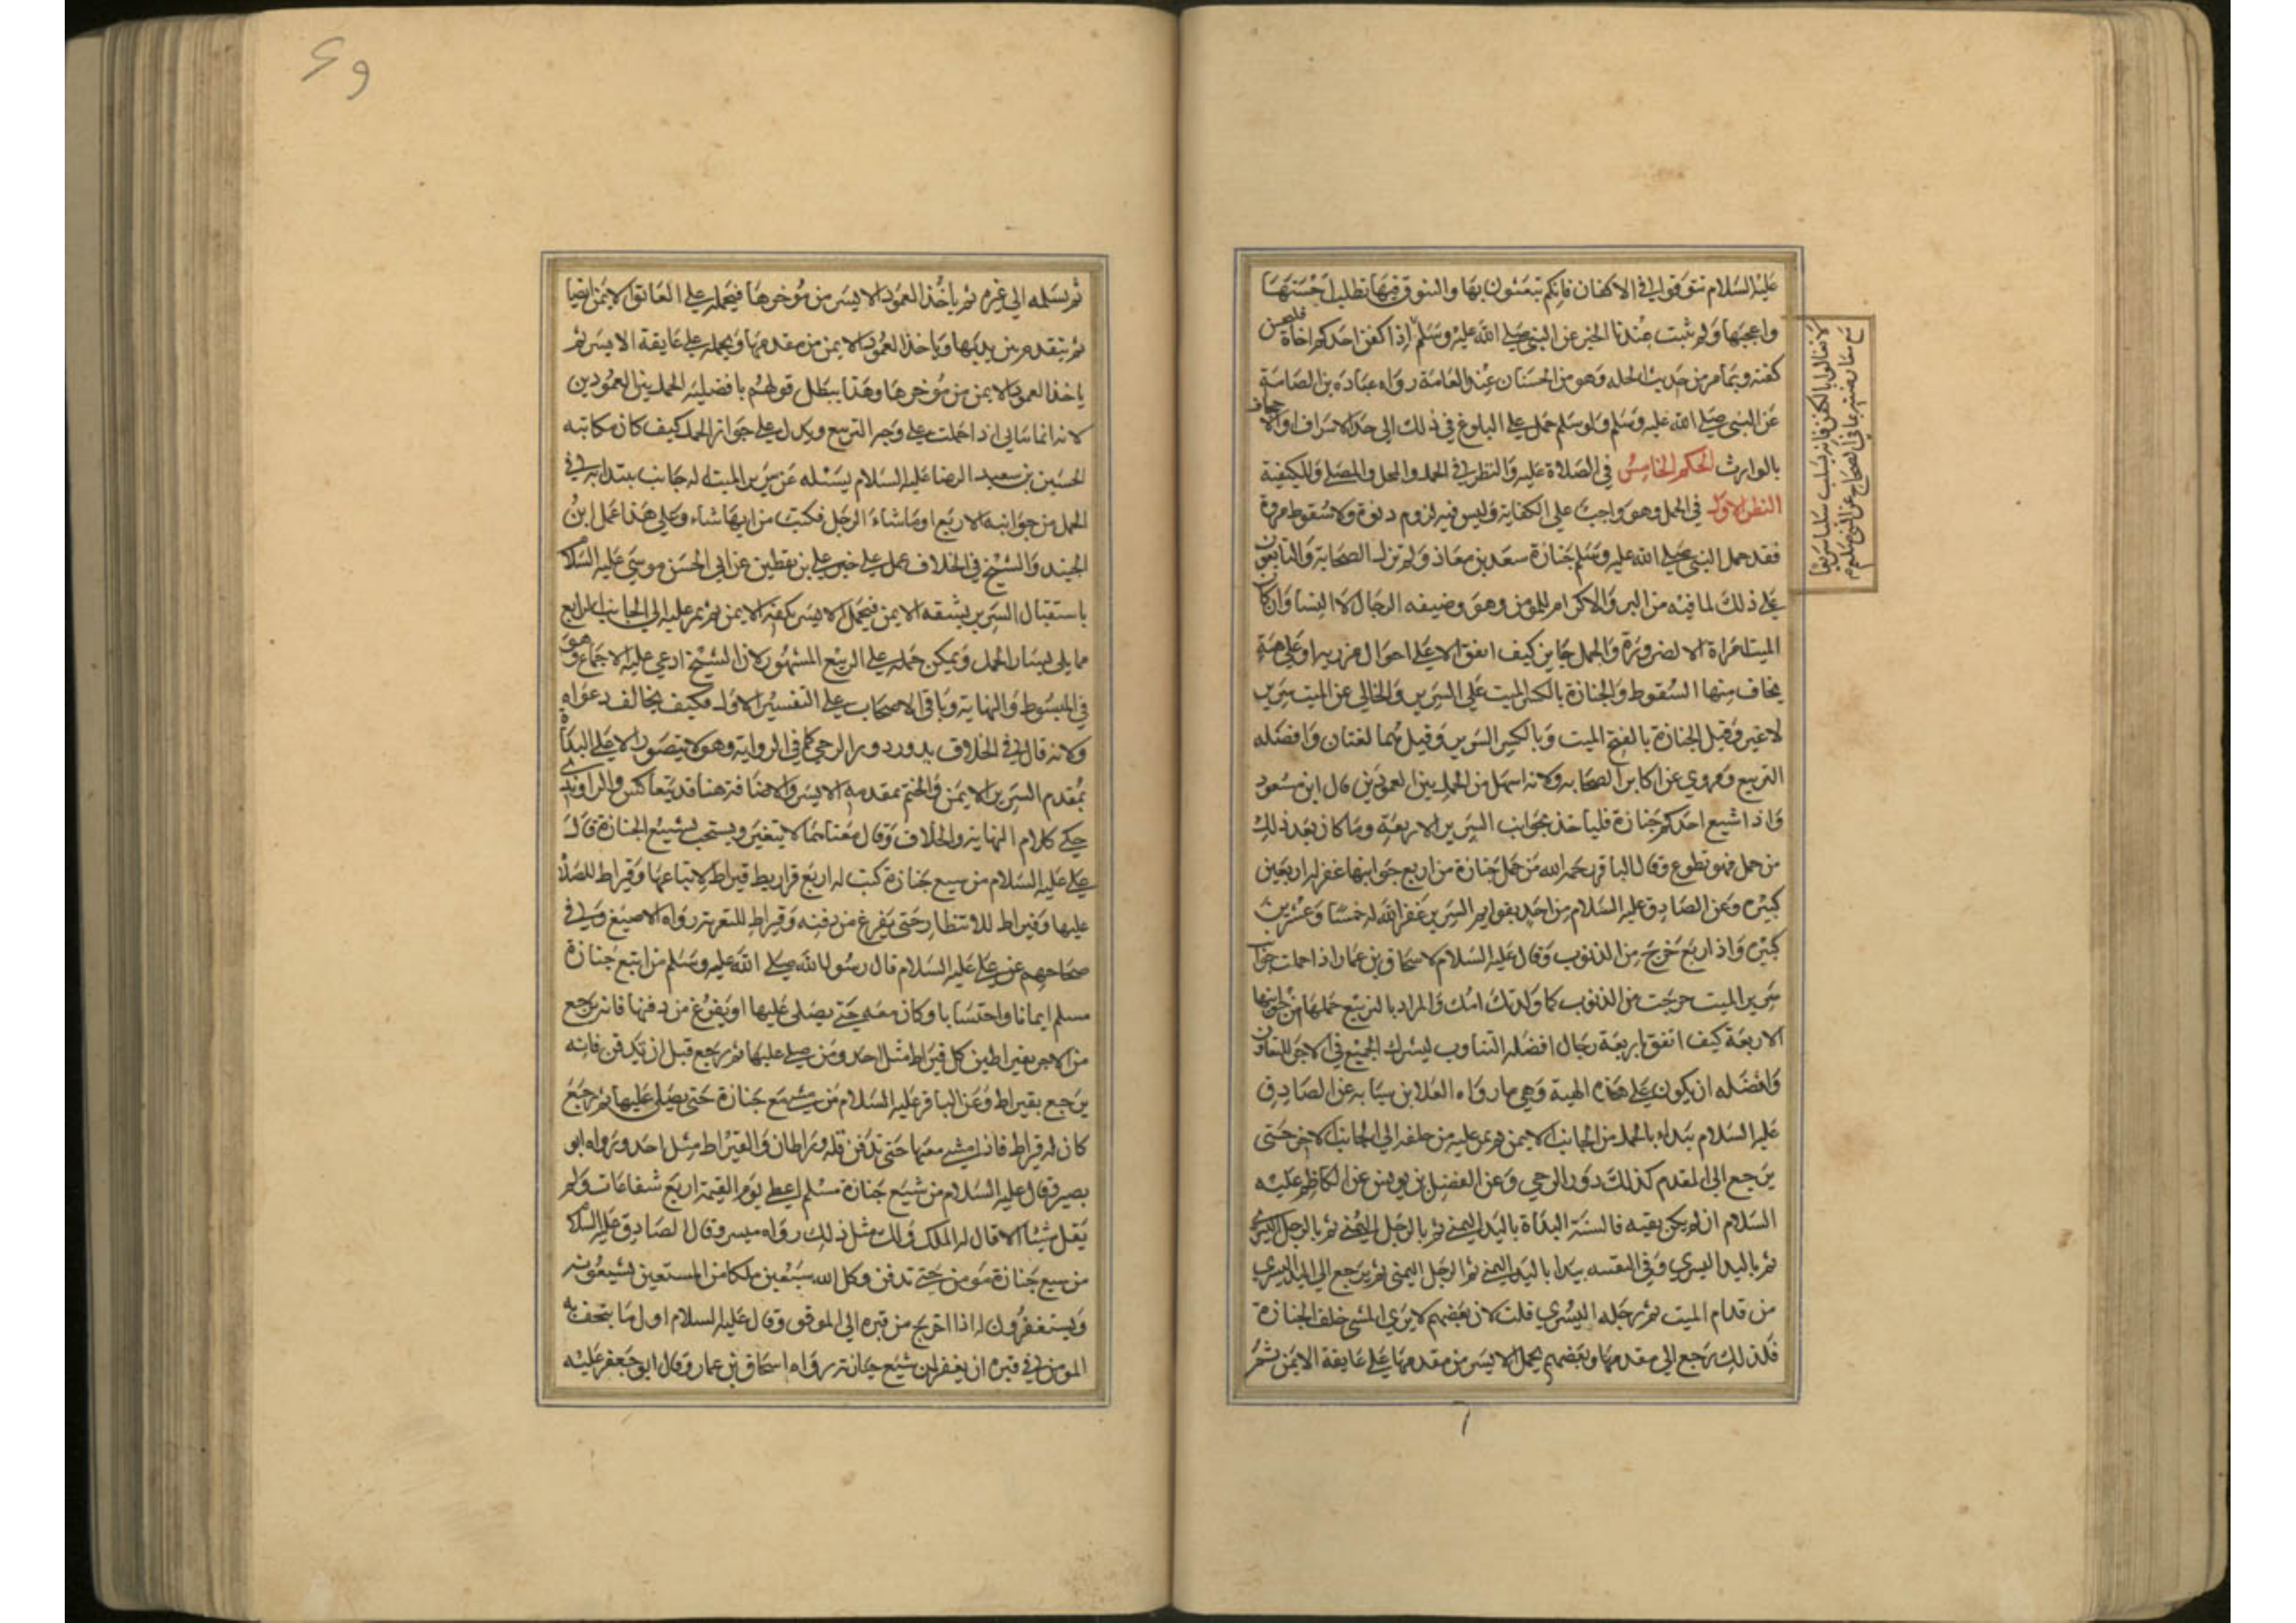 عليه السلام تنوقوا في الاكفان فانكم تبعثون بها والتنوق فيها تطلب احسنها
واعجبها ولم يثبت عندنا الخبر عن النبي صلى الله عليه وسلم اذا كفن احدكم اخاه فليحسن
كفنه وبما مر من حديث الحله وهو من الحسان عند العامة رواه عبادة بن الصامة
عن النبي صلى الله عليه وسلم ولو سلم حمل على البلوغ في ذلك الى حد الاسراف والاجحاف
بالوارث الحكم الخامس في الصلاة عليه والنظر في الحمد والمحل والمصلي والكيفية
النظر الاول في الحمل وهو واجب على الكفاية وليس فيه لزوم دنوة ولا سقوط مروة
فقد حمل النبي صلى الله عليه وسلم جنازة سعد بن معاذ ولم تزل الصحابة والتابعون
على ذلك لما فيه من البر والاكرام للمؤمن وهو وضيفه الرجال لا النسا وان كان
الميت امراة الا لضرورة والحمل جاين كيف اتفق الا على احوال مزريه او على هيئة
يخاف منها السقوط والجنازة بالكسر الميت على السرير والخالي عن الميت سرير
لا غير وقيل الجنازة بالفتح الميت وبالكسر السرير وقيل هما لغتان وافضله
التربيع ومروي عن اكابر الصحابه ولانه اسهل من الحمل بين العمودين قال ابن مسعود
واذا شيع احدكم جنازة فلياخذ بجوانب السرير الاربعة وما كان بعد ذلك
من حمل فهو تطوع وقال الباقر رحمه الله من حمل جنازة من اربع جوانبها غفر له اربعين
كبيره وعن الصادق عليه السلام من اخذ بقوايم السرير غفر الله له خمسا وعشرين
كبيره واذا ربع خرج من الذنوب وقال عليه السلام لاسحاق بن عمار اذا حملت جوانب
سرير الميت خرجت من الذنوب كما ولدتك امك والمراد بالتربيع حملها من جوانبها
الاربعة كيف اتفق باربعة رجال افضله التناوب ليشرك الجميع في الاجر للتعاون
وافضله ان يكون على هذه الهيئة وهي ما رواه العلا بن سيابه عن الصادق
عليه السلام يبداء بالحمد من الجانب الايمن ثم يمر عليه من خلفه الى الجانب الاخر حتى
يرجع الى المقدم كذلك دور الرحي وعن الفضل بن يونس عن الكاظم عليه
السلام ان لم يكن بقيه فالسنة البداة باليد اليمني ثم بالرجل اليمني ثم بالرجل اليسرى
ثم باليد اليسري وفي التقيه يبدا باليد اليمني ثم الرجل اليمني ثم يرجع الى اليد اليسري
من قدام الميت ثم رجله اليسري قلت لان بعضهم لا يري المشي خلف الجنازة
فلذلك يرجع الى مقدمها وبعضهم يحمل الايسر من مقدمها على عايقه الايمن ثم
لا تغالوا بالكفن فانه يسلب سلبا سريعا
مع معارضته بما في الصحاح عن النبي صلعم
ثم يسلمه الى غيره ثم ياخذ العمود الايسر من مؤخرها فيحمله على العاتق الايمن ايضا
ثم يتقدم بين يديها وياخذ العمود الايمن من مقدمها ويحمله على عايقة الايسر ثم
ياخذ العمود الايمن من مؤخرها وهذا يبطل قولهم بافضلية الحمل بين العمودين
لانه انما يتاتى اذا حملت على وجه التربيع ويدل على جواز الحمد كيف كان مكاتبه
الحسين بن سعيد الرضا عليه السلام يسئله عن سرير الميت له جانب يبتدا به في
الحمل من جوانبه الاربع او ما شاء الرجل فكتب من ايها شاء وعلى هذا عمل ابن
الجنيد والشيخ في الخلاف عمل على خبر علي بن يقطين عن ابي الحسن موسى عليه السلام
باستقبال السرير بشقه الايمن فيحمل الايسر بكفه الايمن ثم يمر عليه الى الجانب الرابع
مما يلي يسار الحمل ويمكن حمله على الربيع المشهور لان الشيخ ادعي عليه الاجماع وهو
في المبسوط والنهاية وباقي الاصحاب على التفسير الاول فكيف يخالف دعواه
ولانه قال في الخلاف يدور دور الرحي كما في الرواية وهو لا يتصور الا على البداة
بمقدم السرير الايمن والختم بمقدمه الايسر والاضافة هنا قد يتعاكس والراوندي
حكى كلام النهاية والخلاف وقال معناهما لا يتغير ويستحب تشييع الجنازة قال
علي عليه السلام من سيع جنازة كتب له اربع قراريط قيراط لاتباعها وقيراط للصلاة
عليها وقيراط للانتظار حتى يفرغ من دفنه وقيراط للتعزية رواه الاصبغ وفي
صحاحهم عن علي عليه السلام قال رسول الله صلى الله عليه وسلم من اتبع جنازة
مسلم ايمانا واحتسابا وكان معه حتى يصلى عليها او يفرغ من دفنها فانه يرجع
من الاجر بقيراطين كل قيراط مثل احد ومن صلى عليها ثم رجع قبل ان تدفن فانه
يرجع بقيراط وعن الباقر عليه السلام من مشى مع جنازة حتى يصلى عليها ثم رجع
كان له قيراط فاذا مشى معها حتى تدفن فله قيراطان والقيراط مثل احد ورواه ابو
بصير وقال عليه السلام من شيع جنازة مسلم اعطي يوم القيمة اربع شفاعات ولم
يقل شيئا الا قال له الملك ولك مثل ذلك رواه ميسر وقال الصادق عليه السلام
من سيع جنازة مومن حتى تدفن وكل الله سبعين ملكا من المستعين يشيعونه
ويستغفرون له اذا اخرج من قبره الى الموقف وقال عليه السلام اول ما يتحف به
المومن في قبره ان يغفر لمن شيع جنازته رواه اسحاق بن عمار وقال ابو جعفر عليه